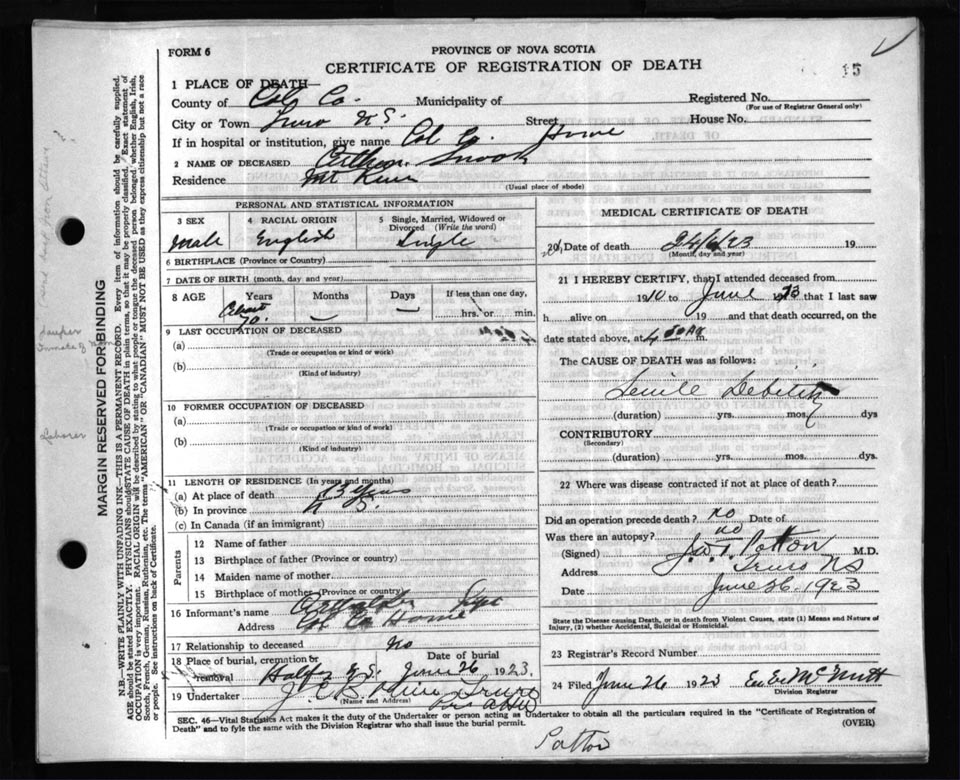 15
FORM 6
PROVINCE OF NOVA SCOTIA
CERTIFICATE OF REGISTRATION OF DEATH
1 PLACE OF DEATH—
County of Col. Co. Municipality of
Registered No.
(For use of Registrar General only)
City or Town Truro N.S. Street
House No.
If in hospital or institution, give name Col Co. Home
2 NAME OF DECEASED Snook
Residence
(Usual place of abode)
PERSONAL AND STATISTICAL INFORMATION
3 SEX
Male
4 RACIAL ORIGIN
English
5 Single, Married, Widowed or Divorced (Write the word)
Single
6 BIRTHPLACE (Province or Country)
7 DATE OF BIRTH (month, day and year)
8 AGE
Years
About 70
Months
—
Days
—
If less than one day,
hrs. or min.
9 LAST OCCUPATION OF DECEASED
(a)
(Trade or occupation or kind or work)
(b)
(Kind of industry)
10 FORMER OCCUPATION OF DECEASED
(a)
(Trade or occupation or kind of work)
(b)
(Kind of industry)
11 LENGTH OF RESIDENCE (In years and months)
(a) At place of death 13 years
(b) In province N.S.
(c) In Canada (if an immigrant)
Parents
12 Name of father
13 Birthplace of father (Province or country)
14 Maiden name of mother
15 Birthplace of mother (Province or country)
16 Informant's name
Address Col Co Home
17 Relationship to deceased no
18 Place of burial, cremation or removal Halfx N.S.
Date of burial June 26 1923.
19 Undertaker Truro
(Name and Address)
MEDICAL CERTIFICATE OF DEATH
20 Date of death 24/6/23 19
(Month, day and year)
21 I HEREBY CERTIFY, that I attended deceased from
1910 to June 1923 that I last saw
h alive on 19 and that death occurred, on the
date stated above, at 4 30 AM m.
The CAUSE OF DEATH was as follows:
Senile Debility
(duration) yrs. mos. dys
CONTRIBUTORY
(Secondary)
(duration) yrs. mos. dys.
22 Where was disease contracted if not at place of death?
Did an operation precede death? no Date of
Was there an autopsy? no
(Signed) Patton M.D.
Address Truro NS
Date June 26. 1923
State the Disease causing Death, or in death from Violent Causes, state (1) Means and Nature of
Injury, (2) whether Accidental, Suicidal or Homicidal.
23 Registrar's Record Number
24 Filed June 26 1923 McNutt
Division Registrar
SEC. 46—Vital Statistics Act makes it the duty of the Undertaker or person acting as Undertaker to obtain all the particulars required in the "Certificate of Registration of
Death" and to fyle the same with the Division Registrar who shall issue the burial permit.
(OVER)
Patton
MARGIN RESERVED FOR BINDING
Laborer
N.B.—WRITE PLAINLY WITH UNFADING INK—THIS IS A PERMANENT RECORD. Every item of information should be carefully supplied.
AGE should be stated EXACTLY. PHYSICIANS should STATE CAUSE OF DEATH in plain terms, so that it may be properly classified. Exact statement of
OCCUPATION is very important. RACIAL ORIGIN will be described by stating to what people or tongue the deceased person belonged, whether English, Irish,
Scotch, French, German, Russian, Ruthenian, etc. The terms "AMERICAN" OR "CANADIAN" MUST NOT BE USED as they express citizenship but not a race
or people. See instructions on back of Certificate.